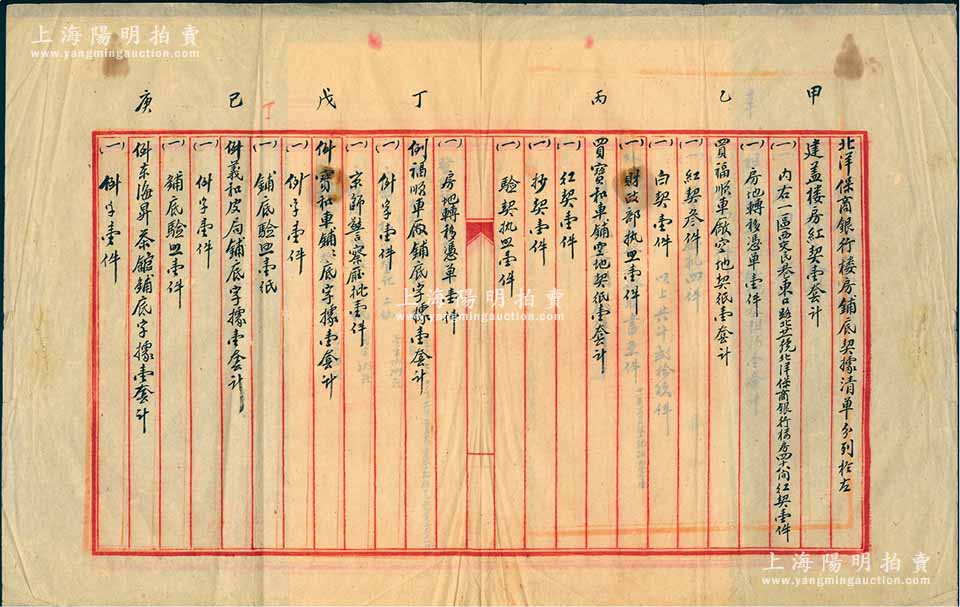 上海陽明拍賣
www.yangmingauction.com
北洋保商銀行楼房鋪底契據清單分列於左
甲
建蓋楼房紅契壹套計
(一) 內右一區西交民巷東口路北廿一號北洋保商銀行楼房四十六间红契壹件
(一) 房地轉移憑单壹件
乙
買福順車廠空地契纸壹套計
(一) 紅契叁件
(一) 白契壹件
(一) 財政部执照壹件
丙
買寶和車鋪空地契紙壹套計
(一) 红契壹件
(一) 抄契壹件
(一) 驗契执照壹件
(一) 房地轉移憑单壹件
丁
倒福順車廠鋪底字據壹套計
(一) 倒字壹件
(一) 京師警察廰批壹件
戊
倒寶和車鋪鋪底字據壹套計
(一) 倒字壹件
(一) 鋪底驗照壹纸
己
倒義和皮局鋪底字據壹套計
(一) 倒字壹件
(一) 鋪底驗照壹件
庚
倒东海昇茶館鋪底字據壹套計
(一) 倒字壹件
上海陽明拍賣
www.yangmingauction.com